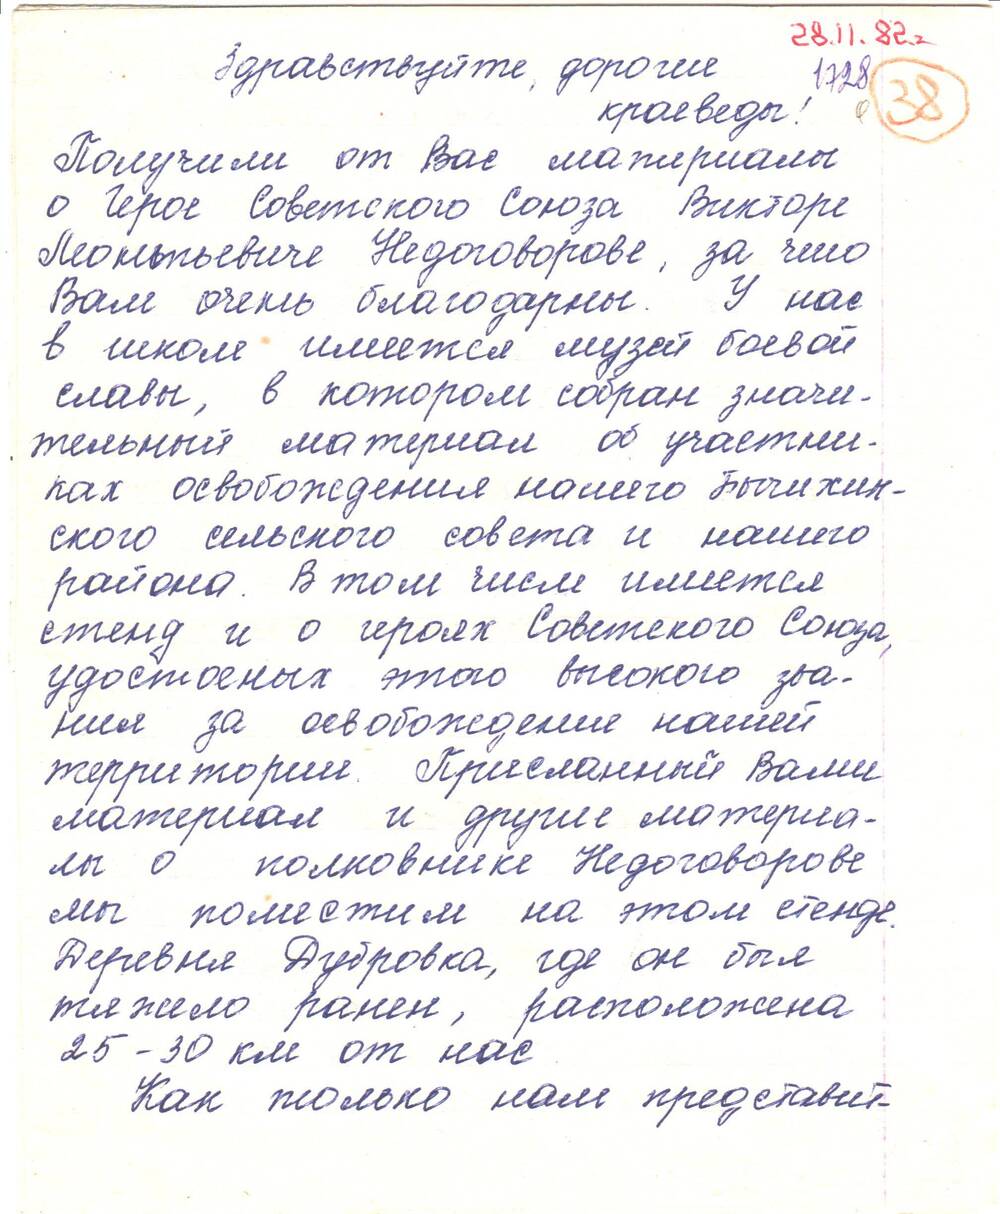 28.11.82г
Здравствуйте, дорогие
1728
38
краеведы!
Получили от Вас материалы
о Герое Советского Союза Викторе
Леонтьевиче Недоговорове, за что
Вам очень благодарны. У нас
в школе имеется музей боевой
славы, в котором собран значи-
тельный материал об участни-
ках освобождения нашего Бычихин-
ского сельского совета и нашего
района. В том числе имеется
стенд и о героях Советского Союза,
удостоеных этого высокого зва-
ния за освобождение нашей
территории. Присланный Вами
материал и другие материа-
лы о полковнике Недоговорове
мы поместим на этом стенде.
Деревня Дубровка, где он был
тяжело ранен, расположена
25-30 км от нас
Как только нам представит-